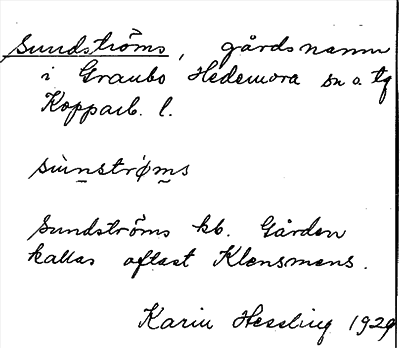 Sundströms, gårdsnamn
i Graubo Hedemora sn o. tg
Kopparb. l.
sùnstrǿms
Sundströms kb. Gården
kallas oftast Klensmens.
Karin Hessling 1929